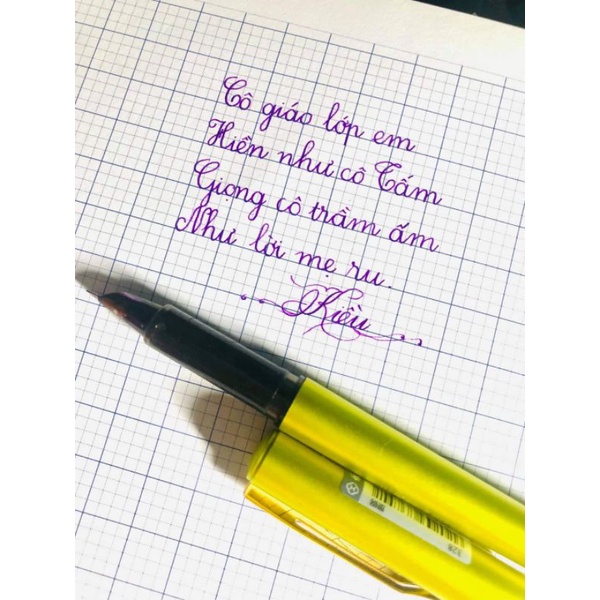 Cô giáo lớp em
Hiền như cô Tấm
Giọng cô trầm ấm
Như lời mẹ ru
Kiều